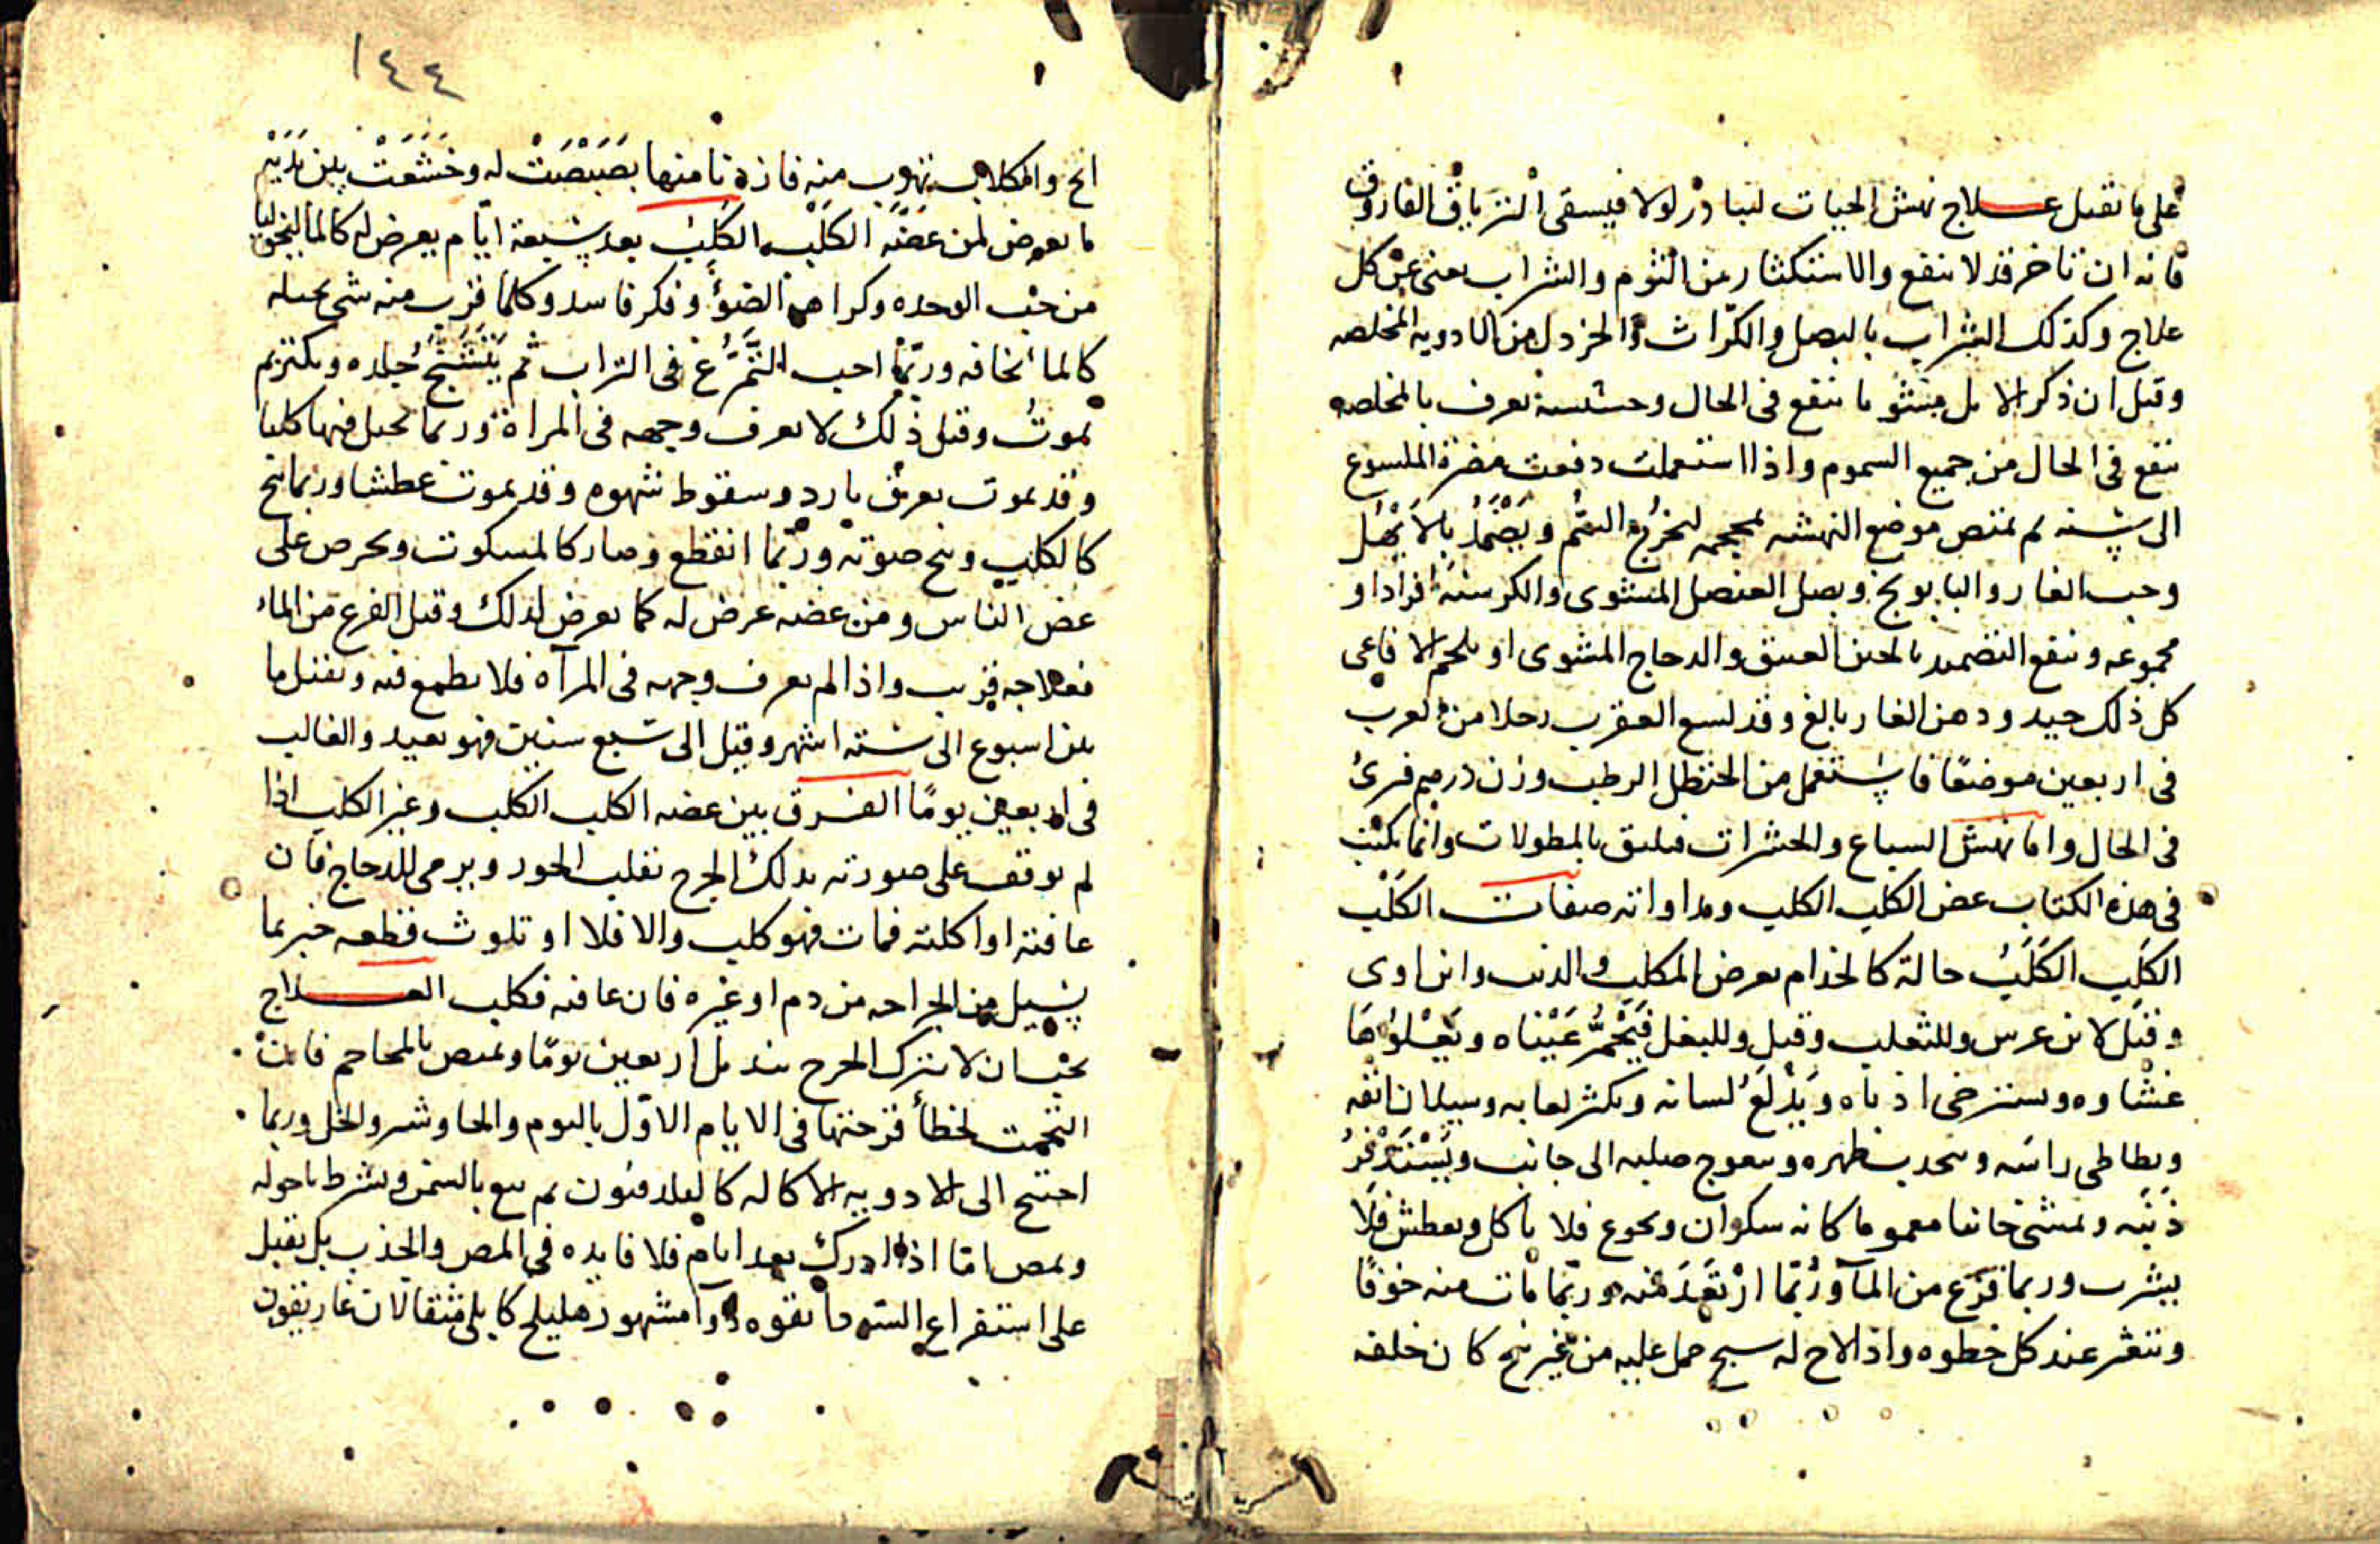 على ما تقبل علاج نهش الحيات لنبادر اولا فيسقى الترياق الفاروق
فانه ان تاخر قد لا ينفع والاستكثار من الثوم والشراب يغنى عن كل
علاج وكذلك الشراب بالبصل والكراث والخردل من الادويه المخلصه
وقيل ان ذكر الايل مشويا ينفع فى الحال وحشيشة تعرف بالمخلصه
تنفع فى الحال من جميع السموم واذا استعملت دفعت مضرة الملسوع
الى سنه ثم يمتص موضع النهشه بمحجمه ليخرج السم ويضمد بالابهل
وحب الغار والبابونج وبصل العنصل المشوى والكرسنه افرادا او
مجموعه وينفع التضميد بالجبن العتيق والدجاج المشوى او بلحم الافاعى
كل ذلك جيد ودهن الغار بالغ وقد لسع العقرب رجلا من العرب
فى اربعين موضعا فاستعمل من الحنظل الرطب وزن درهم فبرئ
فى الحال واما نهش السباع والحشرات فيليق بالمطولات وانما يكتب
فى هذه الكتاب عض الكلب الكلب ومداواته صفات الكلب
الكلب الكَلَبُ حالة كالجذام يعرض للكلب والذئب وابن اوى
وقيل لابن عرس وللثعلب وقيل وللبغل فَيَحْمَرُّ عَيْنَاه ويَعْلُوهَا
غشاوه ويسترخى اذناه وَيَدْلَعُ لسانه ويكثر لعابه وسيلان انفه
ويطاطى راسه ويحدب ظهره ويعوج صلبه الى جانب ويَسْتَدْفِرُ
ذَنَبَه ويمشى خائفا مغموما كانه سكران ويجوع فلا ياكل ويعطش فلا
يشرب وربما فزع من المآ ورُبّما ارْتَعَدَ منه وربّما مات منه خوفًا
ويتعثر عند كل خطوه واذا لاح له شبح حمل عليه من غير نبح كان خلفه
١٤٤
ابح والكلاب تهرب منه فاذا دنا منها بَصْبَصَتْ له وخَشَعَتْ بين يَدَيْه
ما يعرض لمن عَضّه الكَلْب الكَلِبُ بعد سبعة ايّام يعرض له كالماليخوليا
من حب الوحده وكراهة الضوء وفكر فاسد وكلما قرب منه شئ تخيله
كالما فخافه وربّما احب التَّمَرُّغ فى التراب ثم يَتَشَنَّجُ جلده ويكزّ ثم
يموتُ وقبل ذلك لا يعرف وجهه فى المراة وربما تخيل فيها كلبا
وقد يموت بعرق بارد وسقوط شهوه وقد يموت عطشا وربما نبح
كالكلب وبح صوته ورُبّما انقطع وصار كالمسكوت ويحرص على
عض الناس ومن عضه عرض له كما يعرض لذلك وقبل الفزع من الماء
فعلاجه قريب واذا لم يعرف وجهه فى المرآه فلا يطمع فيه ويقتل ما
بين اسبوع الى سته اشهر وقيل الى سبع سنين فهو بعيد والغالب
فى اربعين يومًا الفرق بين عضه الكلب الكلب وغير الكلب اذا
لم يوقف على صورته يدلك الجرح بقلب الجوز ويرمى للدجاج فان
عافته او اكلته فمات فهو كلب والا فلا او تلوث قطعه خبز بما
يسيل من الجراحه من دم او غيره فان عافه فكلب العلاج
يجب ان لا يترك الجرح يندمل اربعين يومًا ويمتص بالمحاجم فان
التحمت لخطأ قرحتها فى الايام الاوّل بالثوم والجاوشير والخل وربما
احتيج الى الادويه الاكاله كالفلدفيون ثم يتبع بالسمن ويشرط ما حوله
ويمص امّا اذا ادرك بعد ايام فلا فايده فى المص والجذب بل يقبل
على استفراغ السوداء بقوه دوآ مشهور هليلج كابلى مثقالان غاريقون